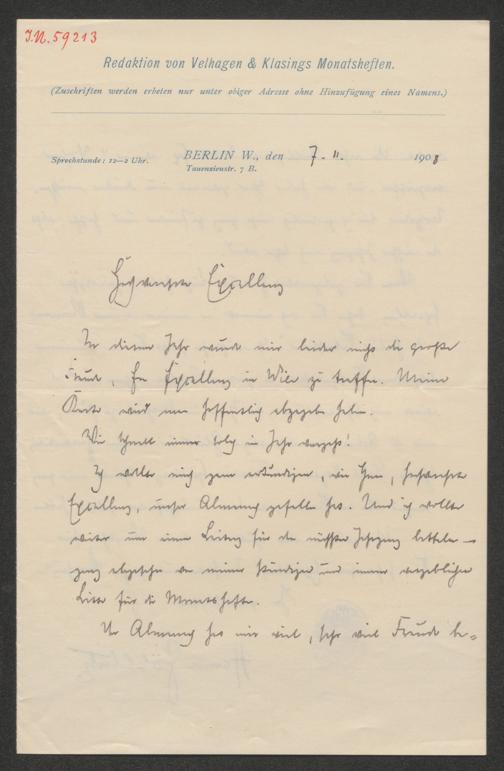 I.N. 59213
Redaktion von Velhagen & Klasings Monatsheften.
(Zuschriften werden erbeten nur unter obiger Adresse ohne Hinzufügung eines Namens.)
Sprechstunde: 12—2 Uhr.
BERLIN W., den 7. 11. 1908
Tauenzienstr. 7 B.
Hochverehrte Excellenz
In diesem Jahr wurde mir leider nicht die große
Freude, Ew. Excellenz in Wien zu treffen. Meine
Karte wird man hoffentlich abgegeben haben.
Wie schnell immer solch ein Jahr vergeht!
Ich wollte mich gern erkundigen, wie Ihnen, hochverehrte
Excellenz, unser Almanach gefallen hat. Und ich wollte
weiter um einen Beitrag für den nächsten Jahrgang betteln —
ganz abgesehen von meiner ständigen und immer vergeblichen
Bitte für die Monatshefte.
Der Almanach hat mir viel, sehr viel Freude be=